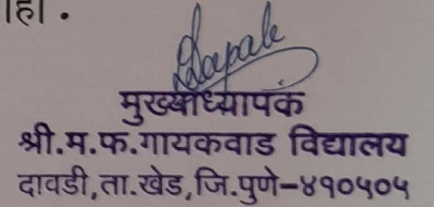 मुख्याध्यापक
श्री.म.फ.गायकवाड विद्यालय
दावडी,ता.खेड,जि.पुणे-४१०५०५